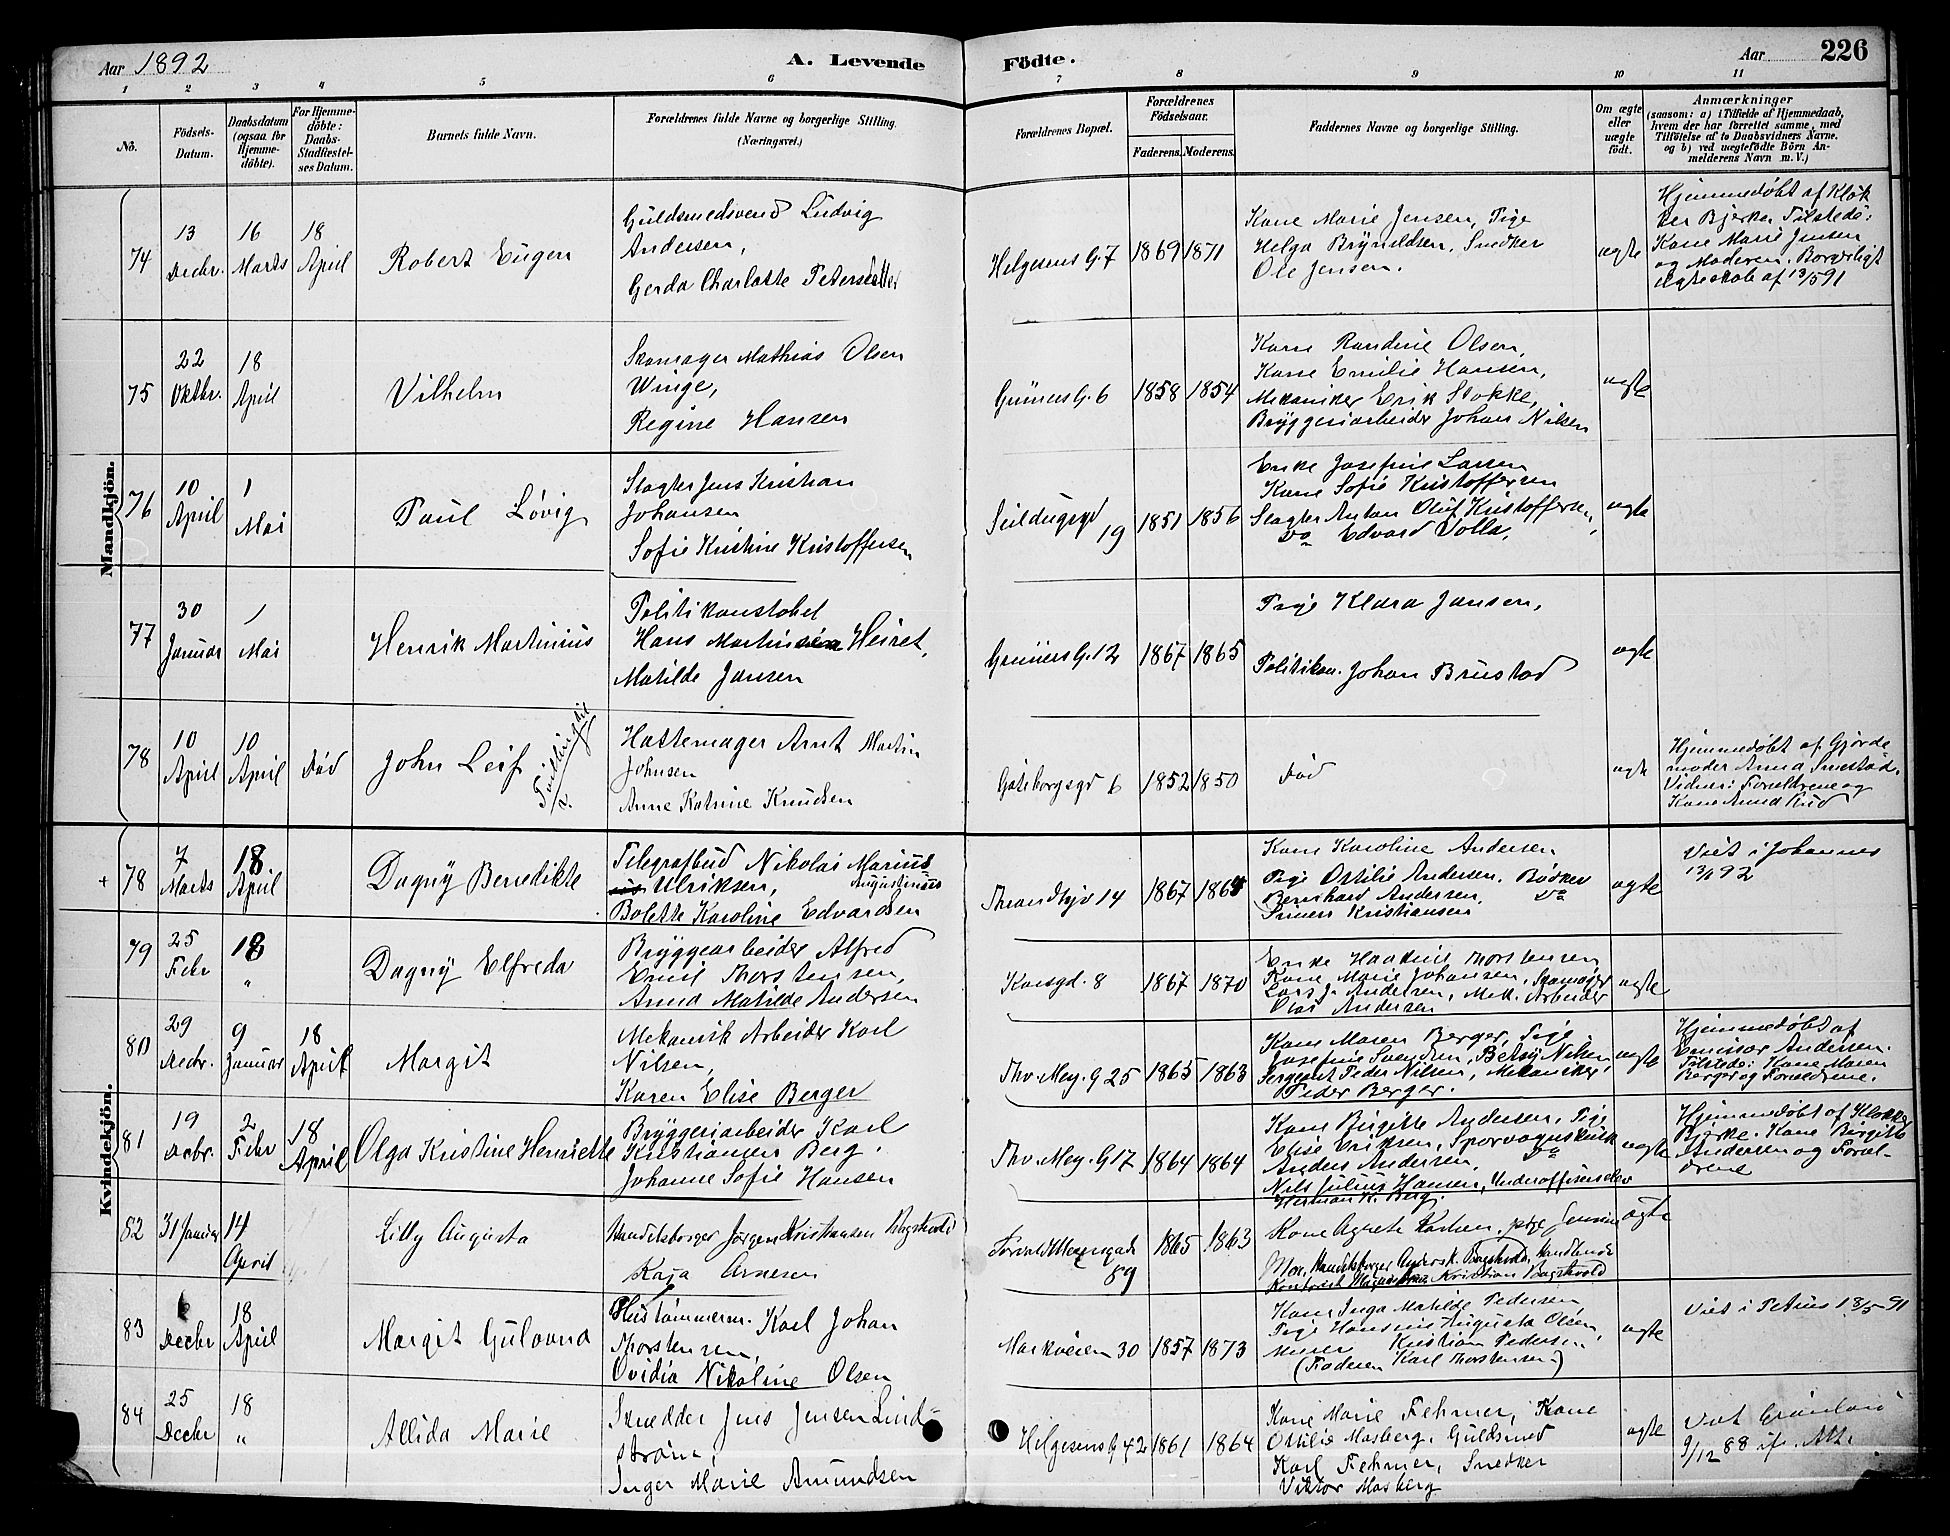 Aar 1892
A. Levende
Födte.
Aar
226
1 2 3 4 5 6 7 8 9 10 11
No.
Födsels-
Datum.
Daabsdatum
(ogsaa for
Hjemme-
döbte).
For Hjemme-
döbte:
Daabs-
Stadfæstel-
ses Datum.
Barnets fulde Navn.
Forældrenes fulde Navne og borgerlige Stilling.
(Næringsvei.)
Forældrenes Bopæl.
Forældrenes
Födselsaar.
Faderens.
Moderens.
Faddernes Navne og borgerlige Stilling.
Om ægte
eller
uægte
födt.
Anmærkninger
(saasom: a) i Tilfælde af Hjemmedaab,
hvem der har forrettet samme, med
Tilföielse af to Daabsvidners Navne.
og b) ved uægtefödte Börn An-
melderens Navn m. V.)
Mandkjön.
74
13
Decbr.
16
Marts
18
April
Robert Eugen
Guldsmedsvend Ludvig
Andersen,
Gerda Charlotte Petersdatter
Helgesens G. 7
1869
1871
Kone Marie Jensen, Pige
Helga Brynildsen, Snedker
Ole Jensen.
ægte
Hjemmedøbt af Klok
ker Bjerke. Tilstede:
Kone Marie Jensen
og Moderen. Borgerligt
Ægteskab af 13/5 91
75
22
Oktbr.
18
April
Vilhelm
Skomager Mathias Olsen
Winge,
Regine Hansen
Grüners G. 6
1858
1854
Kone Randine Olsen,
Kone Emilie Hansen,
Mekaniker Erik Stokke,
Bryggeriarbeider Johan Nilsen
ægte
76
10
April
1
Mai
Paul Løvig
Slagter Jens Kristian
Johansen
Sofie Kristine Kristoffersen
19
1851
1856
Enke Josefine Larsen
Kone Sofie Kristoffersen
Slagter Anton Oluf Kristoffersen,
Do Edvard Volla,
ægte
77
30
Januar
1
Mai
Henrik Martinius
Politikonstabel
Hans Martinsen Heiret,
Matilde Jansen
Grüners G. 12
1867
1865
Pige Klara Jansen,
Politikon. Johan Brustad
ægte
78
10
April
10
April
Død
John Leif
Tvilling til
Hattemager Arnt Martin
Johnsen
Anne Katrine Knudsen
Gøteborgsgd 6
1852
1850
Død
ægte
Hjemmedøbt af Gjorde
moder Anna Smestad.
Vidner: Forældrene og
Kone Anna Rud
Kvindekjön.
+ 78
7
Marts
18
April
Dagny Benedikte
Telegrafbud Nikolai Marius
Augustinius
Ulriksen,
Bolette Karoline Edvardsen
Throndhjv 14
1867
1864
Kone Karoline Andersen
Pige Ottilie Andersen, Bødker
Bernhard Andersen, Do
Kristiansen
ægte
Viet i Johannes
13/1 92
79
25
Febr
18
"
Dagny Elfreda
Bryggearbeider Alfred
Emil Thorstensen,
Anna Matilde Andersen
Korsgd. 8
1867
1870
Enke Haakine Thorstensen
Kone Marie Johansen, Skomager
Lars J. Andersen, Mek. Arbeider
Olas Andersen
ægte
80
29
Decbr.
9
Januar
18
April
Margit
Mekanisk Arbeider Karl
Nilsen,
Karen Elise Berger
Thv. Mey. G 25
1865
1863
Kone Maren Berger, Pige
Josefine Svendsen, Betsy Nilsen,
Sergeant Peder Nilsen, Mekaniker
Peder Berger.
ægte
Hjemmedøbt af
Emissær Andersen.
Tilstede: Kone Maren
Berger og Forældrene.
81
19
Decbr.
2
Febr
18
April
Olga Kristine Henriette
Bryggeriarbeider Karl
Kristiansen Berg,
Johanne Sofie Hansen
Thv. Mey. G 17
1864
1864
Kone Birgitte Andersen, Pige
Elise Eriksen, Sporvognskusk
Anders Andersen, Do
Nils Julius Hansen, Underofficerselev
Herman K. Berg.
ægte
Hjemmedøbt af Klokker
Bjerke. Kone Birgitte
Andersen og Foræl-
drene
82
31 Januar
14
April
Lilly Augusta
Handelsborger Jørgen Kristiansen Bagstevold
Kaja Arnesen
Torvald Meyersgade
89
1865
1863
Kone Agnete Karlsen, pige Jensine
Moe, Handelsborger Anders K. Bagstevold, Handlende
Kristian Bagstevold
ægte
83
Decbr
18
April
Margit Gulovna
Hustømmerm. Karl Johan
Thorstensen,
Ovidia Nikoline Olsen
Markveien 30
1857
1873
Kone Inga Matilde Pedersen
Pige Hansine Augusta Olsen,
Murer Kristian Pedersen
(Faderen Karl Thorstensen)
ægte
Viet i Petrus 18/5 91
84
25
Decbr
18
"
Allida Marie
Skrædder Jens Jensen Lind-
strøm,
Inger Marie Amundsen
Helgesens G 42
1861
1864
Kone Marie Fehmer, Kone
Ottilie Masberg, Guldsmed
Karl Fehmer, Snedker
Viktor Masberg
ægte
Viet Grønland
9/12 88 if. Att.